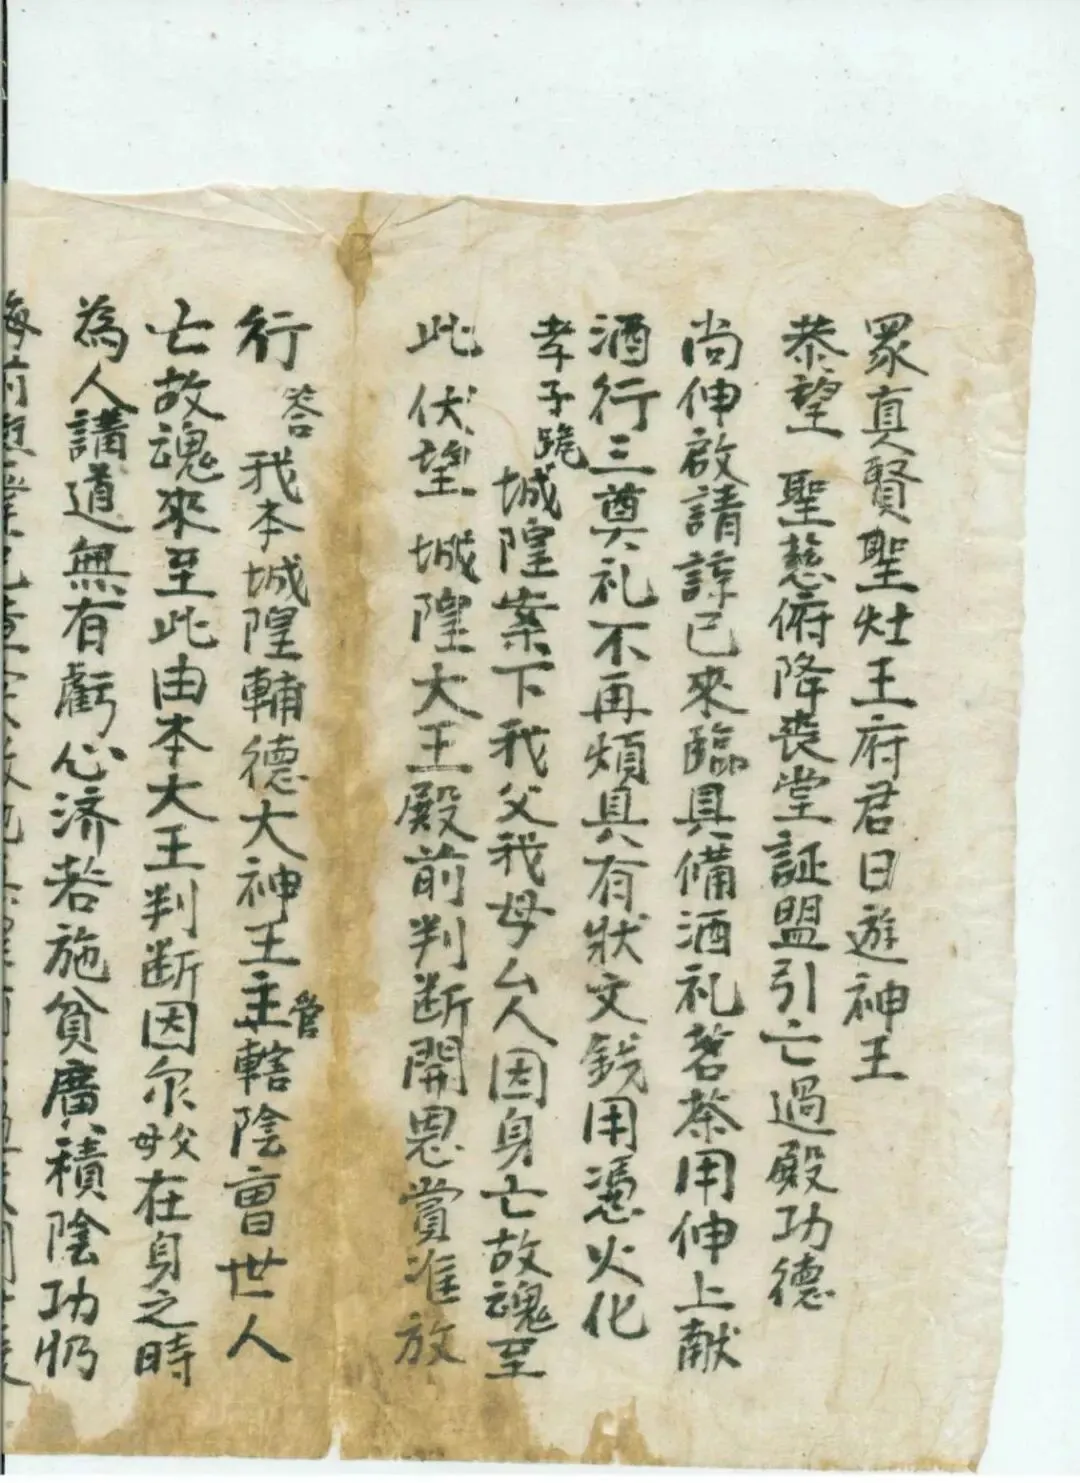 眾真賢聖灶王府君日遊神王
恭望 聖慈俯降喪堂証盟引亡過殿功德
尚伸啟請諒已來臨具備酒礼茗茶用伸上献
酒行三奠礼不再煩具有狀文錢用憑火化
孝子跪 城隍案下我父我母亡人因身亡故魂至
此伏望城隍大王殿前判断開恩賞准放
行 答 我本城隍輔德大神王主管轄陰曹世人
亡故魂來至此由本大王判断因尔父母在身之時
為人講道無有虧心济若施貧廣積陰功